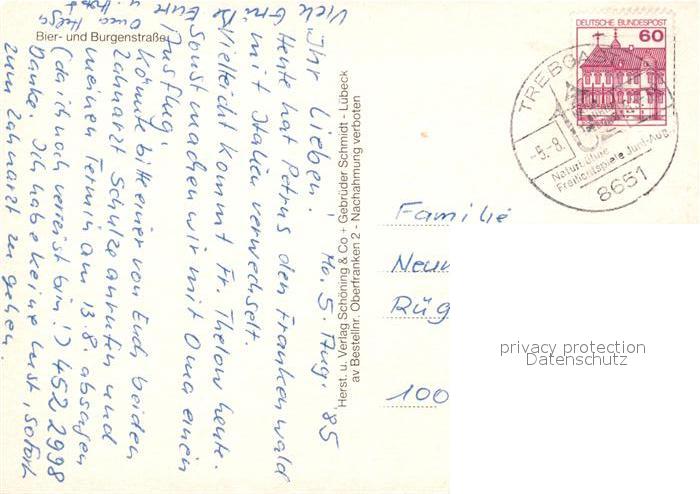 Bier- und Burgenstraße
Mo. 5. Aug. '85
Ihr Lieben!
Heute hat Petrus den Frankenwald
mit Italien verwechselt.
Vielleicht kommt Fr. Thelow heute.
Sonst machen wir mit Oma einen
Ausflug.
Könnte bitte einer von Euch beiden
Zahnarzt Schulze anrufen und
meinen Termin am 13.8. absagen
(da ich noch verreist bin!) 452 2998
Danke. Ich habe keine Lust, sofort
zum Zahnarzt zu gehen.
Viele Grüße
Eure
Oma Helga
u. Horst
Herst. u. Verlag Schöning & Co + Gebrüder Schmidt - Lübeck
av Bestellnr. Oberfranken 2 - Nachahmung verboten
DEUTSCHE BUNDESPOST
60
TREBGAST
-5.-8.
Naturbühne
Freilichtspiele Juni-Aug.
8651
Familie
Neum
Rüg
100
privacy protection
Datenschutz